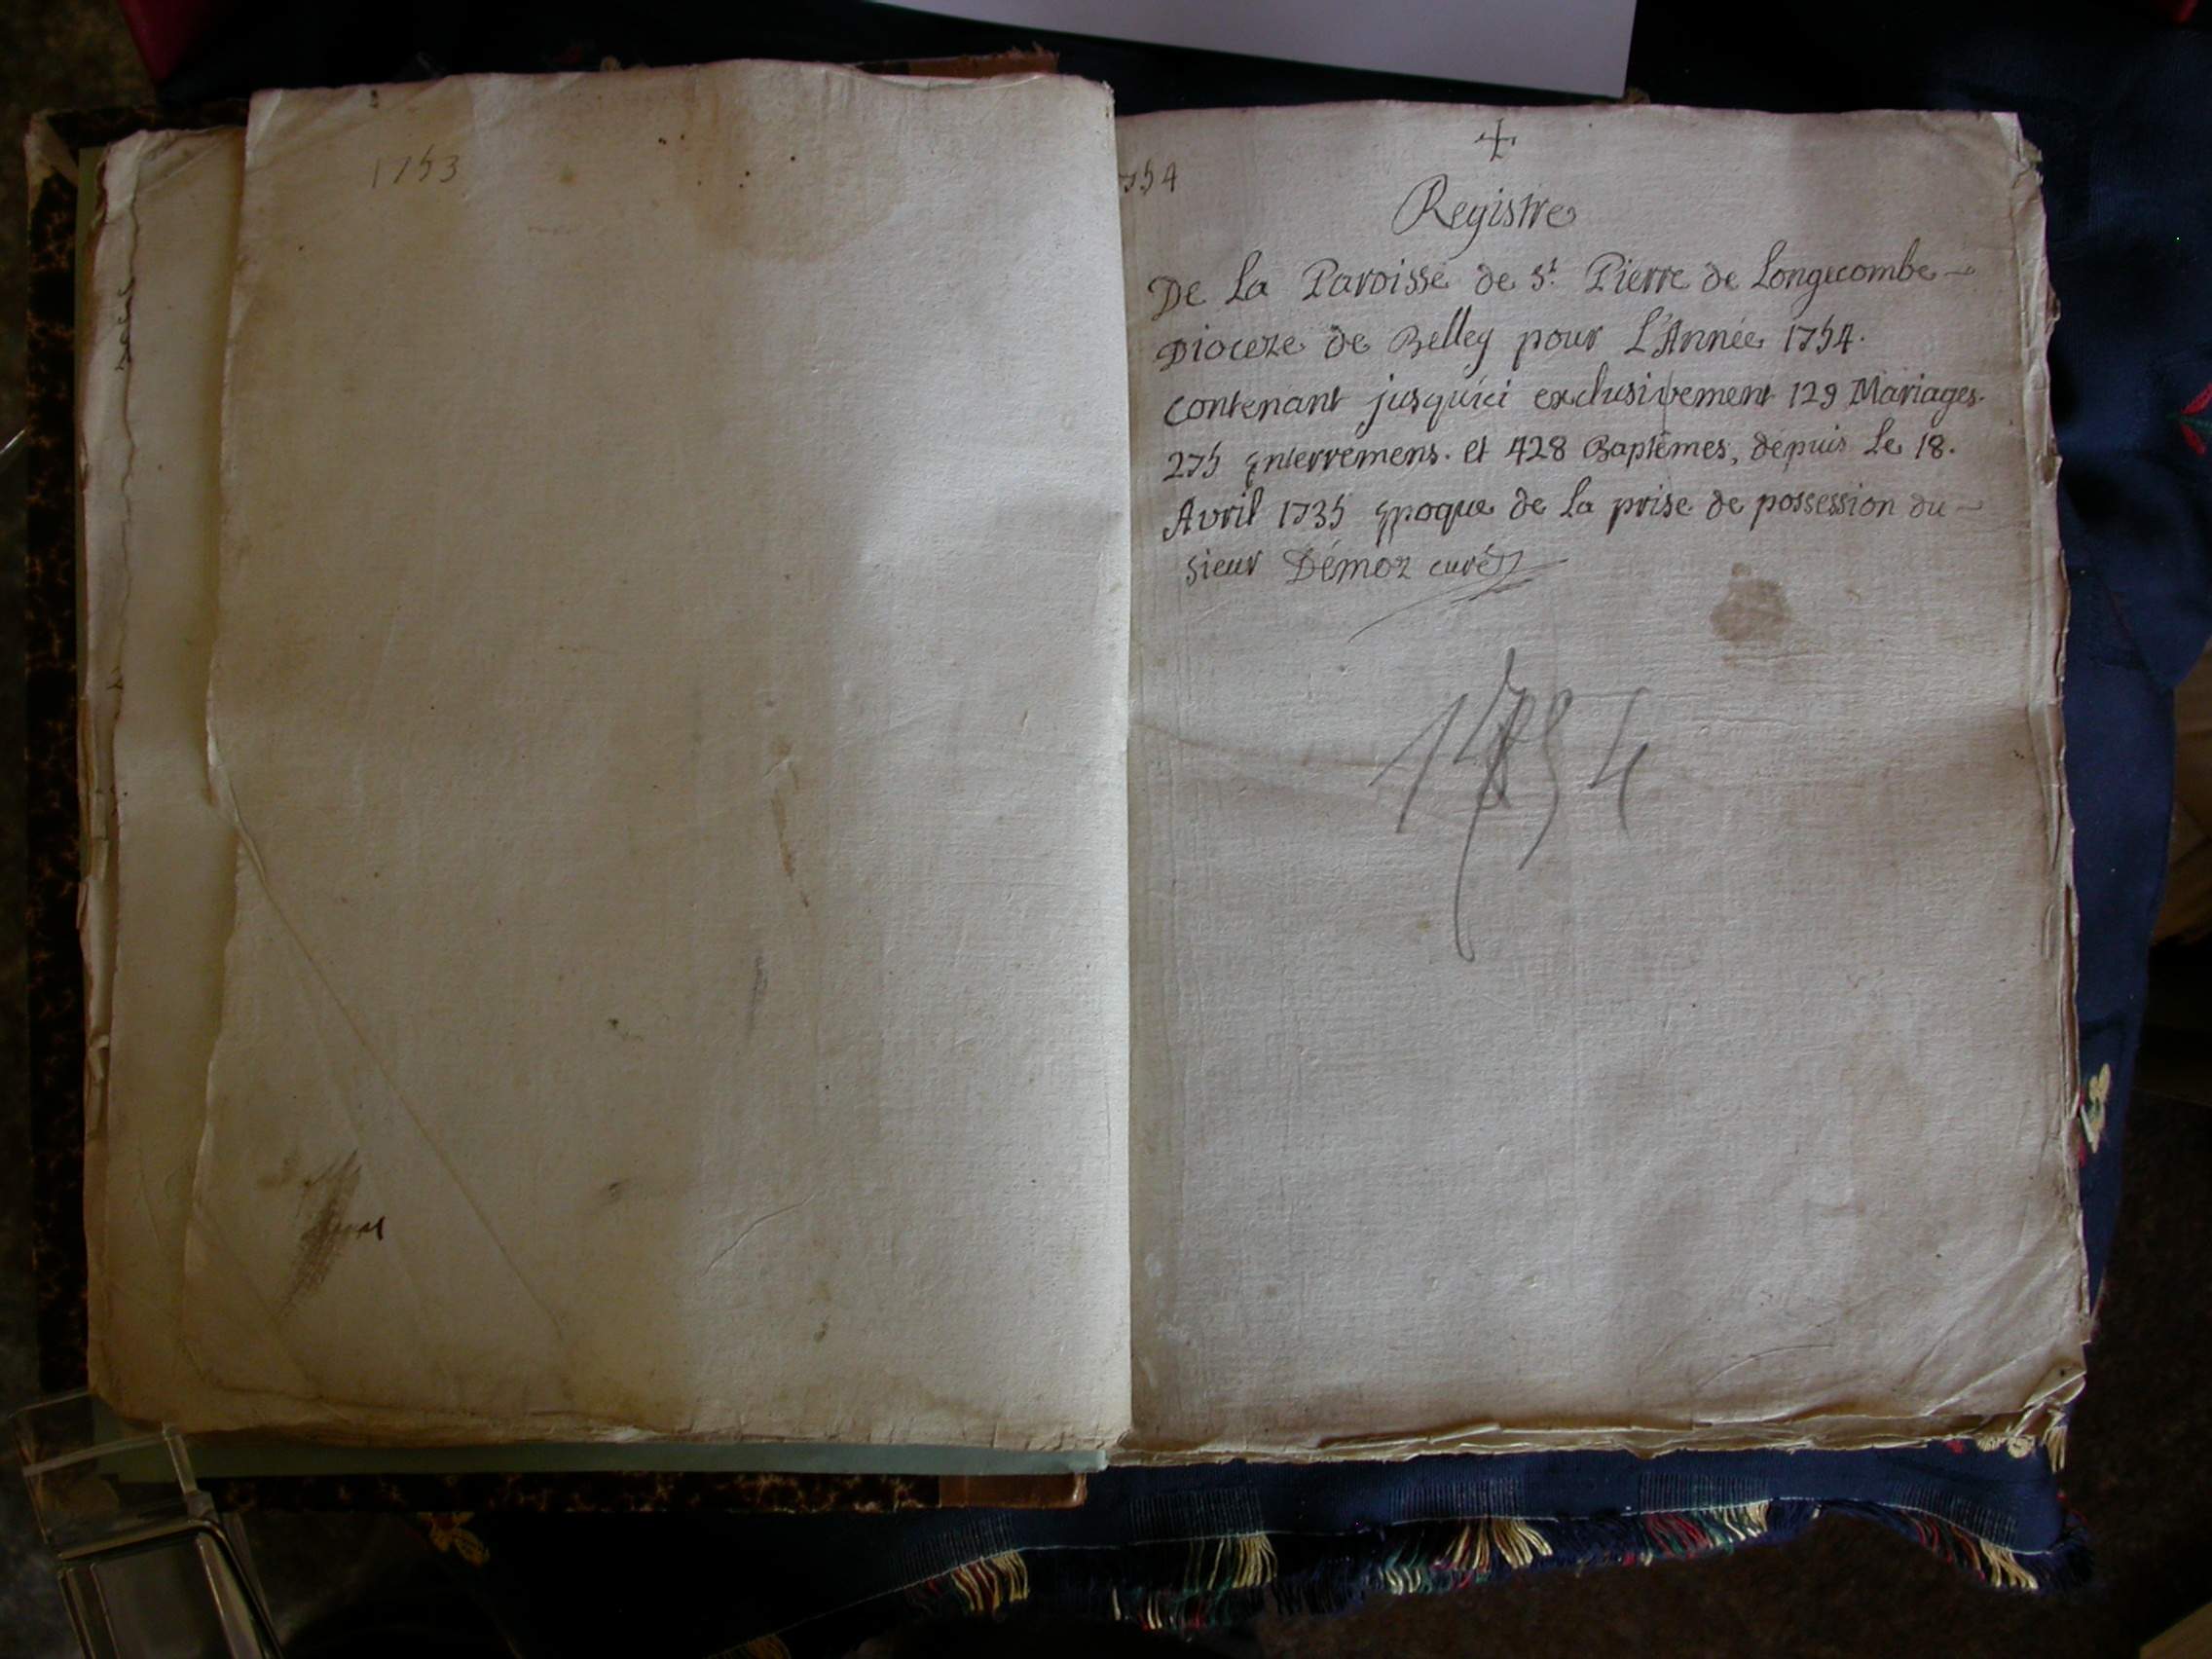 1753
1754
Registre
De La Paroisse de St. Pierre de Longecombe
Dioceze de Belley pour L'Année 1754.
contenant jusqu'ici exclusivement 129 Mariages.
275 Enterremens. et 428 Baptêmes, depuis Le 18.
Avril 1735 Epoque de La prise de possession du
sieur Démoz curé
1754